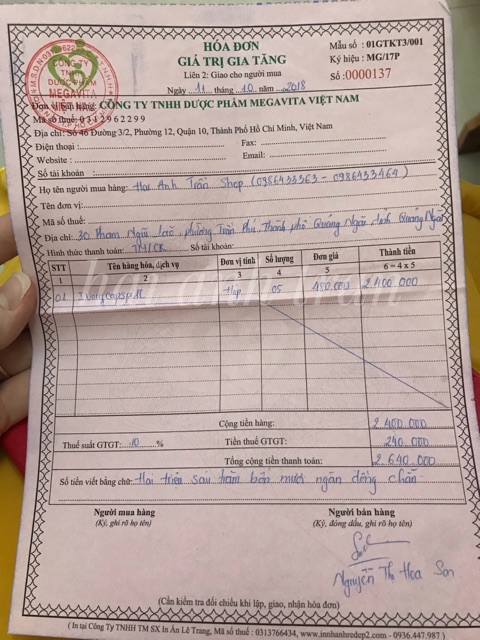 HÓA ĐƠN
GIÁ TRỊ GIA TĂNG
Liên 2: Giao cho người mua
Ngày 11 tháng 10 năm 2018
Mẫu số : 01GTKT3/001
Ký hiệu : MG/17P
Số :0000137
CÔNG TY
TNHH
DƯỢC PHẨM
MEGAVITA
VIỆT NAM
Đơn vị bán hàng: CÔNG TY TNHH DƯỢC PHẨM MEGAVITA VIỆT NAM
Mã số thuế: 0312962299
Địa chỉ: Số 46 Đường 3/2, Phường 12, Quận 10, Thành Phố Hồ Chí Minh, Việt Nam
Điện thoại : Fax:
Website : Email:
Số tài khoản :
Họ tên người mua hàng: Hoa Anh Trần Shop (0986433363 - 0986433464)
Tên đơn vị:
Mã số thuế:
Địa chỉ: 30 Phạm Ngũ Lão, phường Trần Phú, Thành phố Quảng Ngãi, tỉnh Quảng Ngãi
Hình thức thanh toán: TM/CK Số tài khoản:
STT Tên hàng hóa, dịch vụ Đơn vị tính Số lượng Đơn giá Thành tiền
1 2 3 4 5 6 = 4 x 5
01 Ivory Caps Hộp 05 480.000 2.400.000
hoa anh tran
Cộng tiền hàng: 2.400.000
Thuế suất GTGT: 10 % Tiền thuế GTGT: 240.000
Tổng cộng tiền thanh toán: 2.640.000
Số tiền viết bằng chữ: Hai triệu sáu trăm bốn mươi ngàn đồng chẵn
Người mua hàng Người bán hàng
(Ký, ghi rõ họ tên) (Ký, đóng dấu, ghi rõ họ tên)
Nguyễn Thị Hoa Sen
(Cần kiểm tra đối chiếu khi lập, giao, nhận hóa đơn)
( In tại Công Ty TNHH TM SX In Ấn Lê Trang, Mã số thuế : 0313766434, www.innhanhredep2.com - 0936.447.987 )